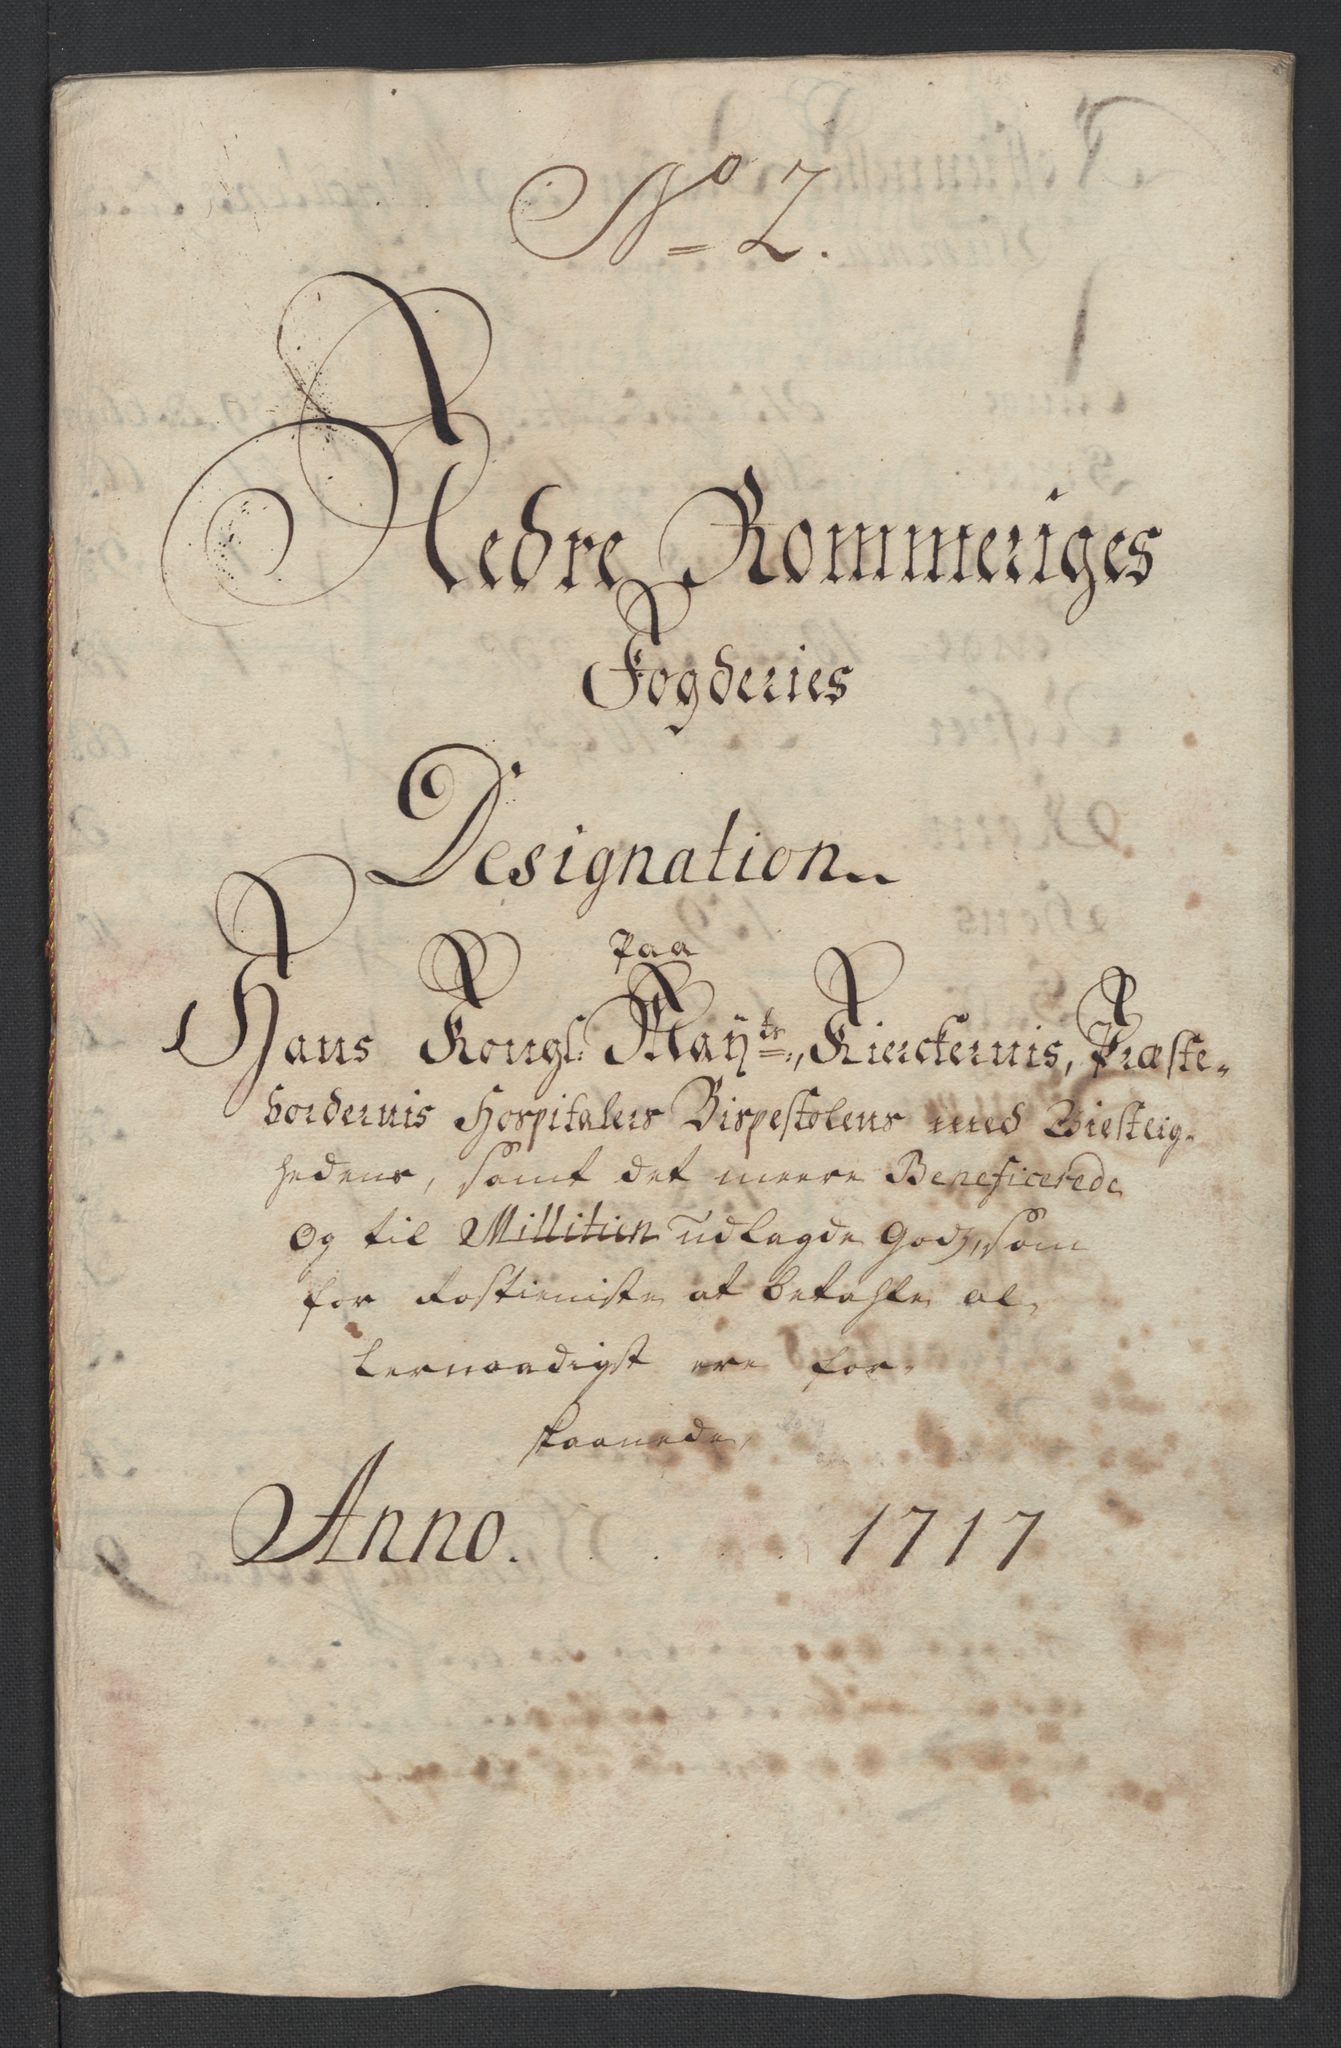 No 2.
Nedre Rommeriges
Fogderies
Designation
Paa
Hans Kongl: Maÿts:, Kierckernis, Præste-
bordernis Hospitalers Bispestolens med Biesteig-
hedens, samt det meere Beneficerede
Og til Millitien udlagde Godz, som
for Rostieniste at betahle al-
lernaadigst ere for-
skaanede,
Anno. 1717